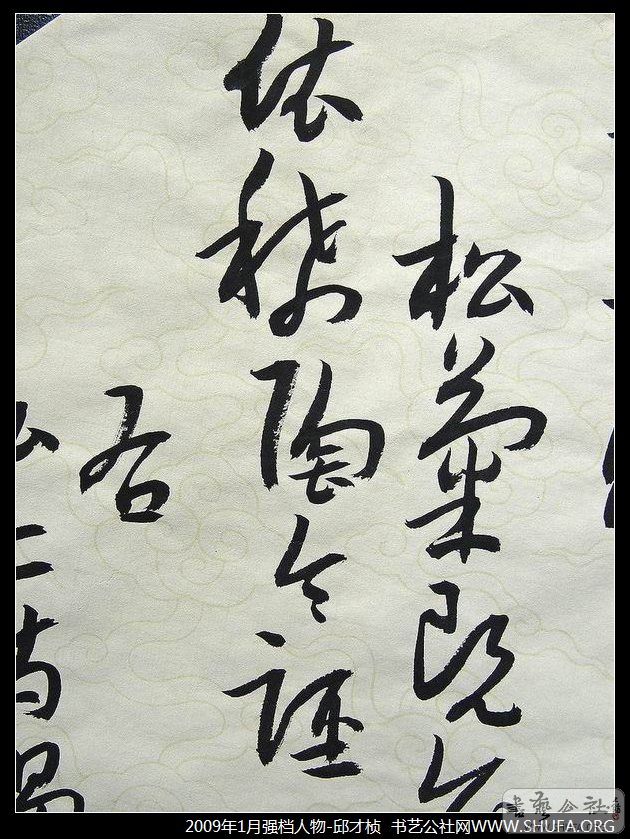 松菊既
依稀陶令
右
二首
書藝公社
2009年1月强档人物-邱才桢 书艺公社网WWW.SHUFA.ORG